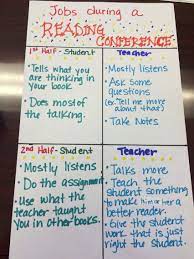 Jobs during a
READING
CONFERENCE
1st Half - Student
• Tells what you
are thinking in
your book.
• Does most of
the talking.
Teacher
• Mostly listens
• Ask some
questions
(ex: Tell me more
about that)
• Take Notes
2nd Half - Student
• Mostly listens
• Do the assignment
• Use what the
teacher taught
you in other books.
Teacher
• Talks more
• Teach the
Student something
to make him or her a
better reader.
• Give the student
work that is just
right the Student.